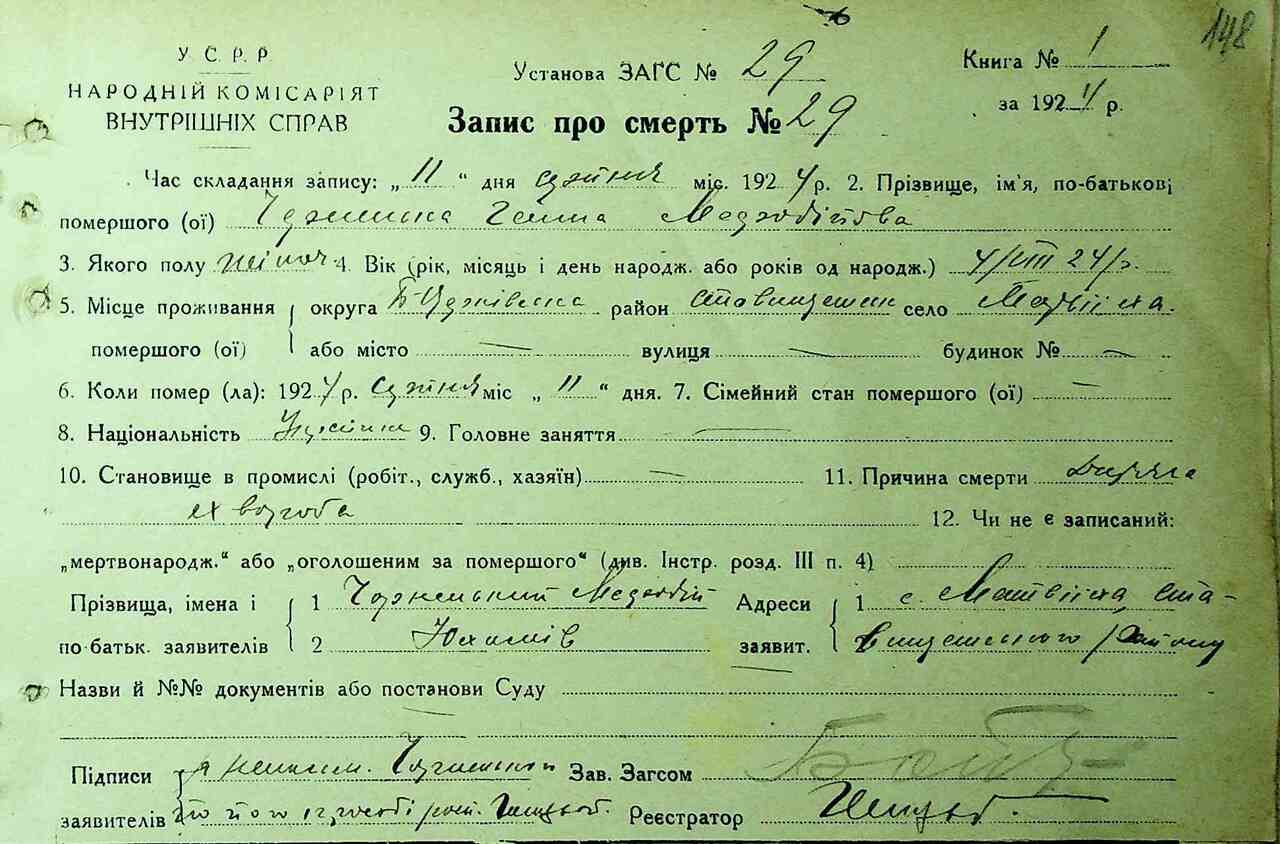 148
У. С. Р. Р
Установа ЗАГС № 29
Книга № 1
НАРОДНІЙ КОМІСАРІЯТ
за 1924 р.
ВНУТРІШНІХ СПРАВ
Запис про смерть № 29
Час складання запису: „11“ дня серпня міс. 1924 р. 2. Прізвище, ім'я, по-батькові
помершого (ої) Ганна Мефодійова
3. Якого полу жіноч 4. Вік (рік, місяць і день народж. або років од народж.) 4/VIII 24 р.
5. Місце проживання { округа Б-Церківська район Ставищенськ село Матвіїха.
помершого (ої) або місто — вулиця — будинок № —
6. Коли помер (ла): 1924 р. серпня міс „11“ дня. 7. Сімейний стан помершого (ої) —
8. Національність 9. Головне заняття —
10. Становище в промислі (робіт., служб., хазяїн) — 11. Причина смерти Дитяча
хвороба 12. Чи не є записаний:
„мертвонародж.“ або „оголошеним за помершого“ (див. Інстр. розд. III п. 4)
Прізвища, імена і { 1 Мефодій Адреси { 1 с. Матвіїха, Ста-
по-батьк. заявителів 2 Юхимів заявит. 2 вищенського району
Назви й №№ документів або постанови Суду
Підписи Зав. Загсом
заявителів Реєстратор